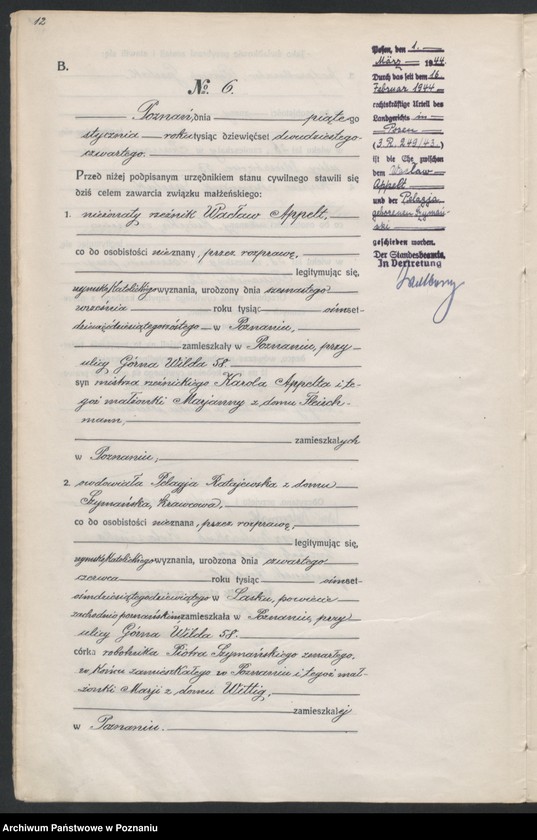 12
B.
No. 6.
Poznań, dnia piątego
stycznia roku tysiąc dziewięćset dwudziestego
czwartego.
Przed niżej podpisanym urzędnikiem stanu cywilnego stawili się
dziś celem zawarcia związku małżeńskiego:
1. nieżonaty rzeźnik Wacław Appelt,
co do osobistości nieznany, przez rozprawę,
legitymując się,
rzymsko katolickiego wyznania, urodzony dnia szóstego
września roku tysiąc ośmset-
dziewięćdziesiątego szóstego w Poznaniu,
zamieszkały w Poznaniu, przy
ulicy Górna Wilda 58.
syn mistrza rzeźnickiego Karola Appelta i te-
goż małżonki Marjanny z domu Fleisch-
mann,
zamieszkałych
w Poznaniu,
2. owdowiała Pelagja Ratajewska z domu
Szymańska, krawcowa,
co do osobistości nieznana, przez rozprawę,
legitymując się,
rzymsko katolickiego wyznania, urodzona dnia czwartego
czerwca roku tysiąc ośmset-
ośmdziesiątego dziewiątego w Sasku, powiecie
zachodnio poznańskim, zamieszkała w Poznaniu, przy
ulicy Górna Wilda 58.
córka robotnika Piotra Szymańskiego zmarłego,
w końcu zamieszkałego w Poznaniu i tegoż mał-
żonki Marji z domu Wittig,
zamieszkałej
w Poznaniu.
Posen, den 1.
März 1944.
Durch das seit dem 16.
Februar 1944
rechtskräftige Urteil des
Landgerichts in
Posen
(3. R. 249/43.)
ist die Ehe zwischen
dem Wacław
Appelt
und der Pelagja
geborenen Szymań-
ski
geschieden worden.
Der Standesbeamte
In Vertretung
Archiwum Państwowe w Poznaniu